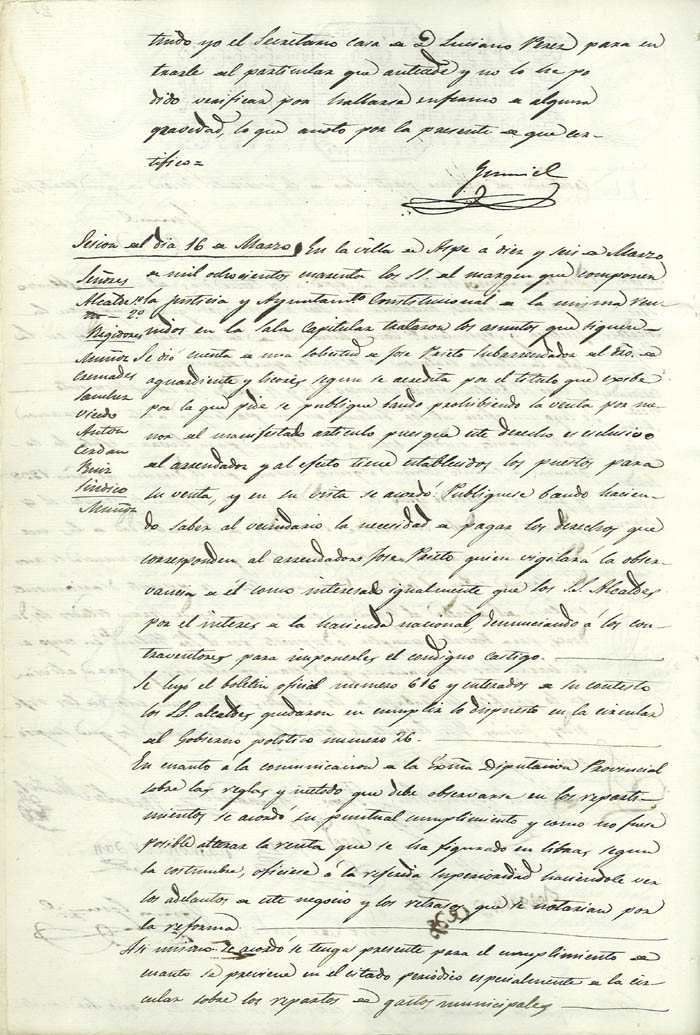 trado yo el Secretario casa de D Luciano Perez para en
trarle del particular que antecede y no lo he po
dido verificar por hallarse enfermo de alguna
gravedad, lo que anoto por la presente de que cer-
tifico =
Sesion del dia 16 de Marzo
Señores
Alcaldes 1º
2º
Regidores
Muñoz
Cremades
Sanchez
Vicedo
Anton
Cerdan
Ruiz
Sindico
Muñoz
En la villa de Aspe á diez y seis de Marzo
de mil ochocientos cuarenta los SS. del margen que componen
la justicia y Ayuntamto Constitucional de la misma reu-
nidos en la Sala Capitular trataron los asuntos que siguen-
Se dió cuenta de una solicitud de Jose Prieto Subarrendador del dro. de
aguardiente y licores segun se acredita por el titulo que exibe
por la que pide se publique bando prohibiendo la venta por me-
nor del manifestado articulo pues que este derecho es esclusivo
del arrendador y al efecto tiene establecidos los puestos para
su venta, y en su vista se acordó: Publiquese bando hacien-
do saber al vecindario la necesidad de pagar los derechos que
corresponden al arrendador Jose Prieto quien vigilará la obser-
vancia de él como interesado igualmente que los SS. Alcaldes
por el interes de la hacienda nacional, denunciando á los con-
traventores para imponerles el condigno castigo.
Se leyó el boletin oficial numero 616 y enterados de su contesto
los SS. alcaldes quedaron en cumplir lo dispuesto en la circular
del Gobierno politico numero 26.
En cuanto á la comunicacion de la Exma Diputacion Provincial
sobre las reglas y metodo que debe observarse en los reparti-
mientos se acordó su puntual cumplimiento y como no fuese
posible alterar la renta que se ha figurado en libras segun
la costumbre, oficiese á la referida superioridad haciendole ver
los adelantos de este negocio y los retrasos que se notarian por
la reforma.
Asi mismo se acordó se tenga presente para el cumplimiento de
cuanto se previene en el citado periodico especialmente de la cir-
cular sobre los repartos de gastos municipales